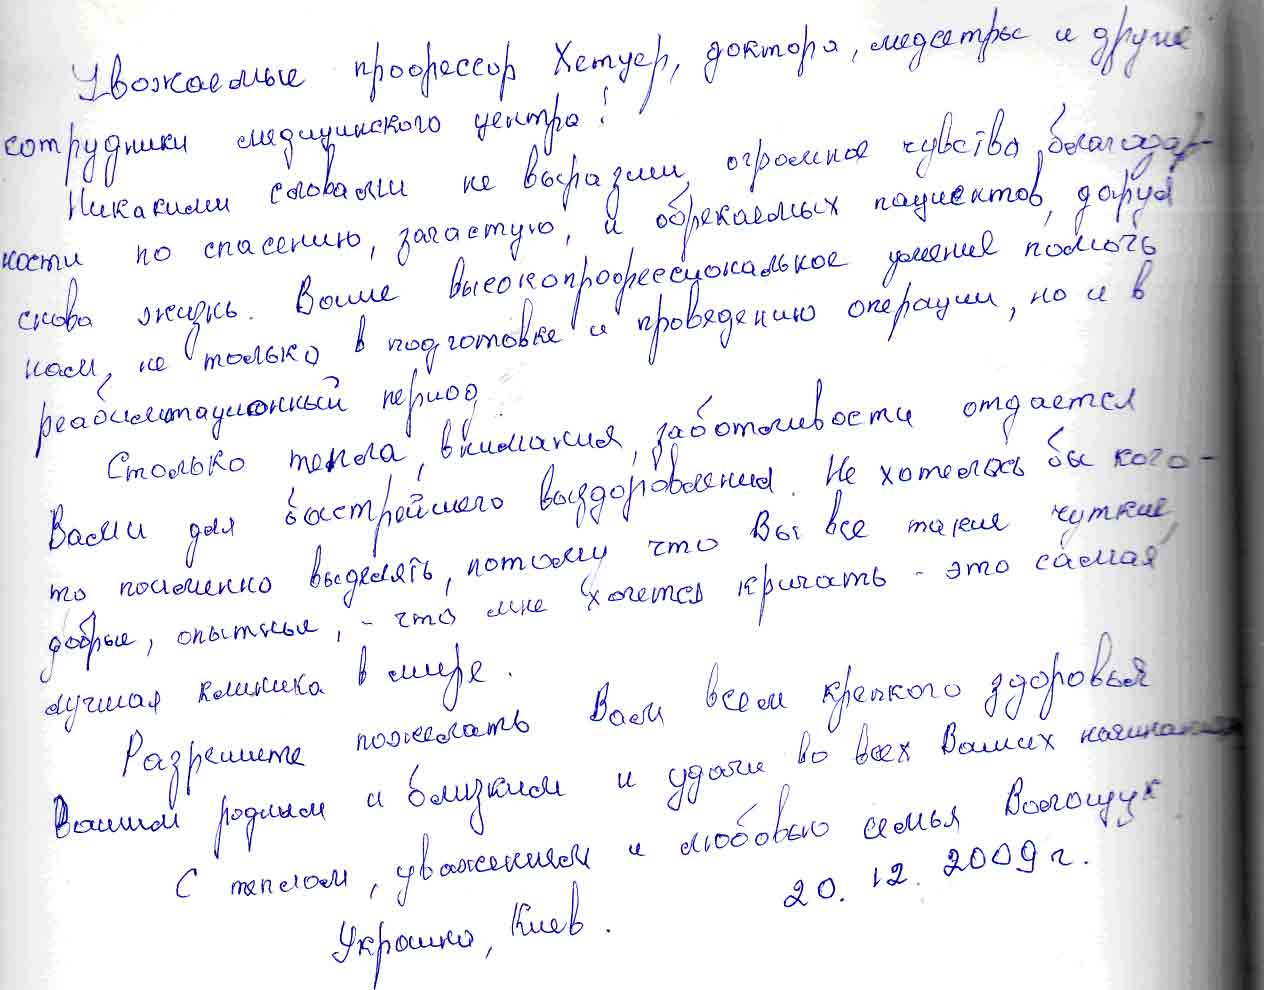 Уважаемые профессор Хетуер, доктора, медсетры и другие
сотрудники медицинского центра!
Никакими словами не выразим огромное чувство благодар-
ности по спасению, зачастую, и обрекаемых пациентов, даруя
снова жизнь. Ваше высокопрофессиональное умение помочь
нам, не только в подготовке и проведению операции, но и в
реабилитационный период.
Столько тепла, внимания, заботливости отдается
Вами для быстрейшего выздоровления. Не хотелось бы кого-
то поименно выделять, потому что Вы все такие чуткие,
добрые, опытные, - что мне хочется кричать - это самая
лучшая клиника в мире.
Разрешите пожелать Вам всем крепкого здоровья
Вашим родным и близким и удачи во всех Ваших начинаниях
С теплом, уважением и любовью семья Волощук
Украина, Киев. 20.12.2009 г.